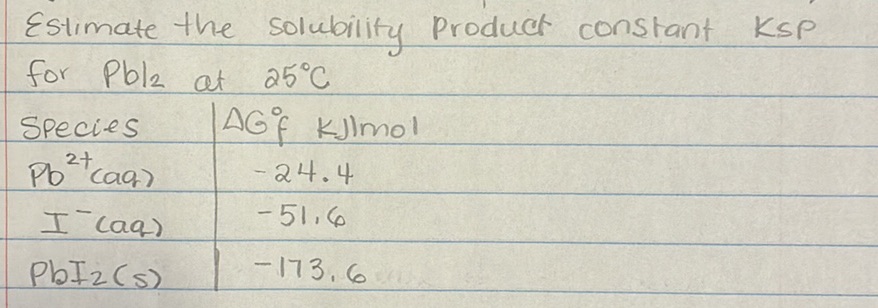 Estimate the solubility Product constant Ksp
for PbI2 at 25°C
Species ΔG°f KJ/mol
Pb²⁺(aq) -24.4
I⁻(aq) -51.6
PbI2(s) -173.6